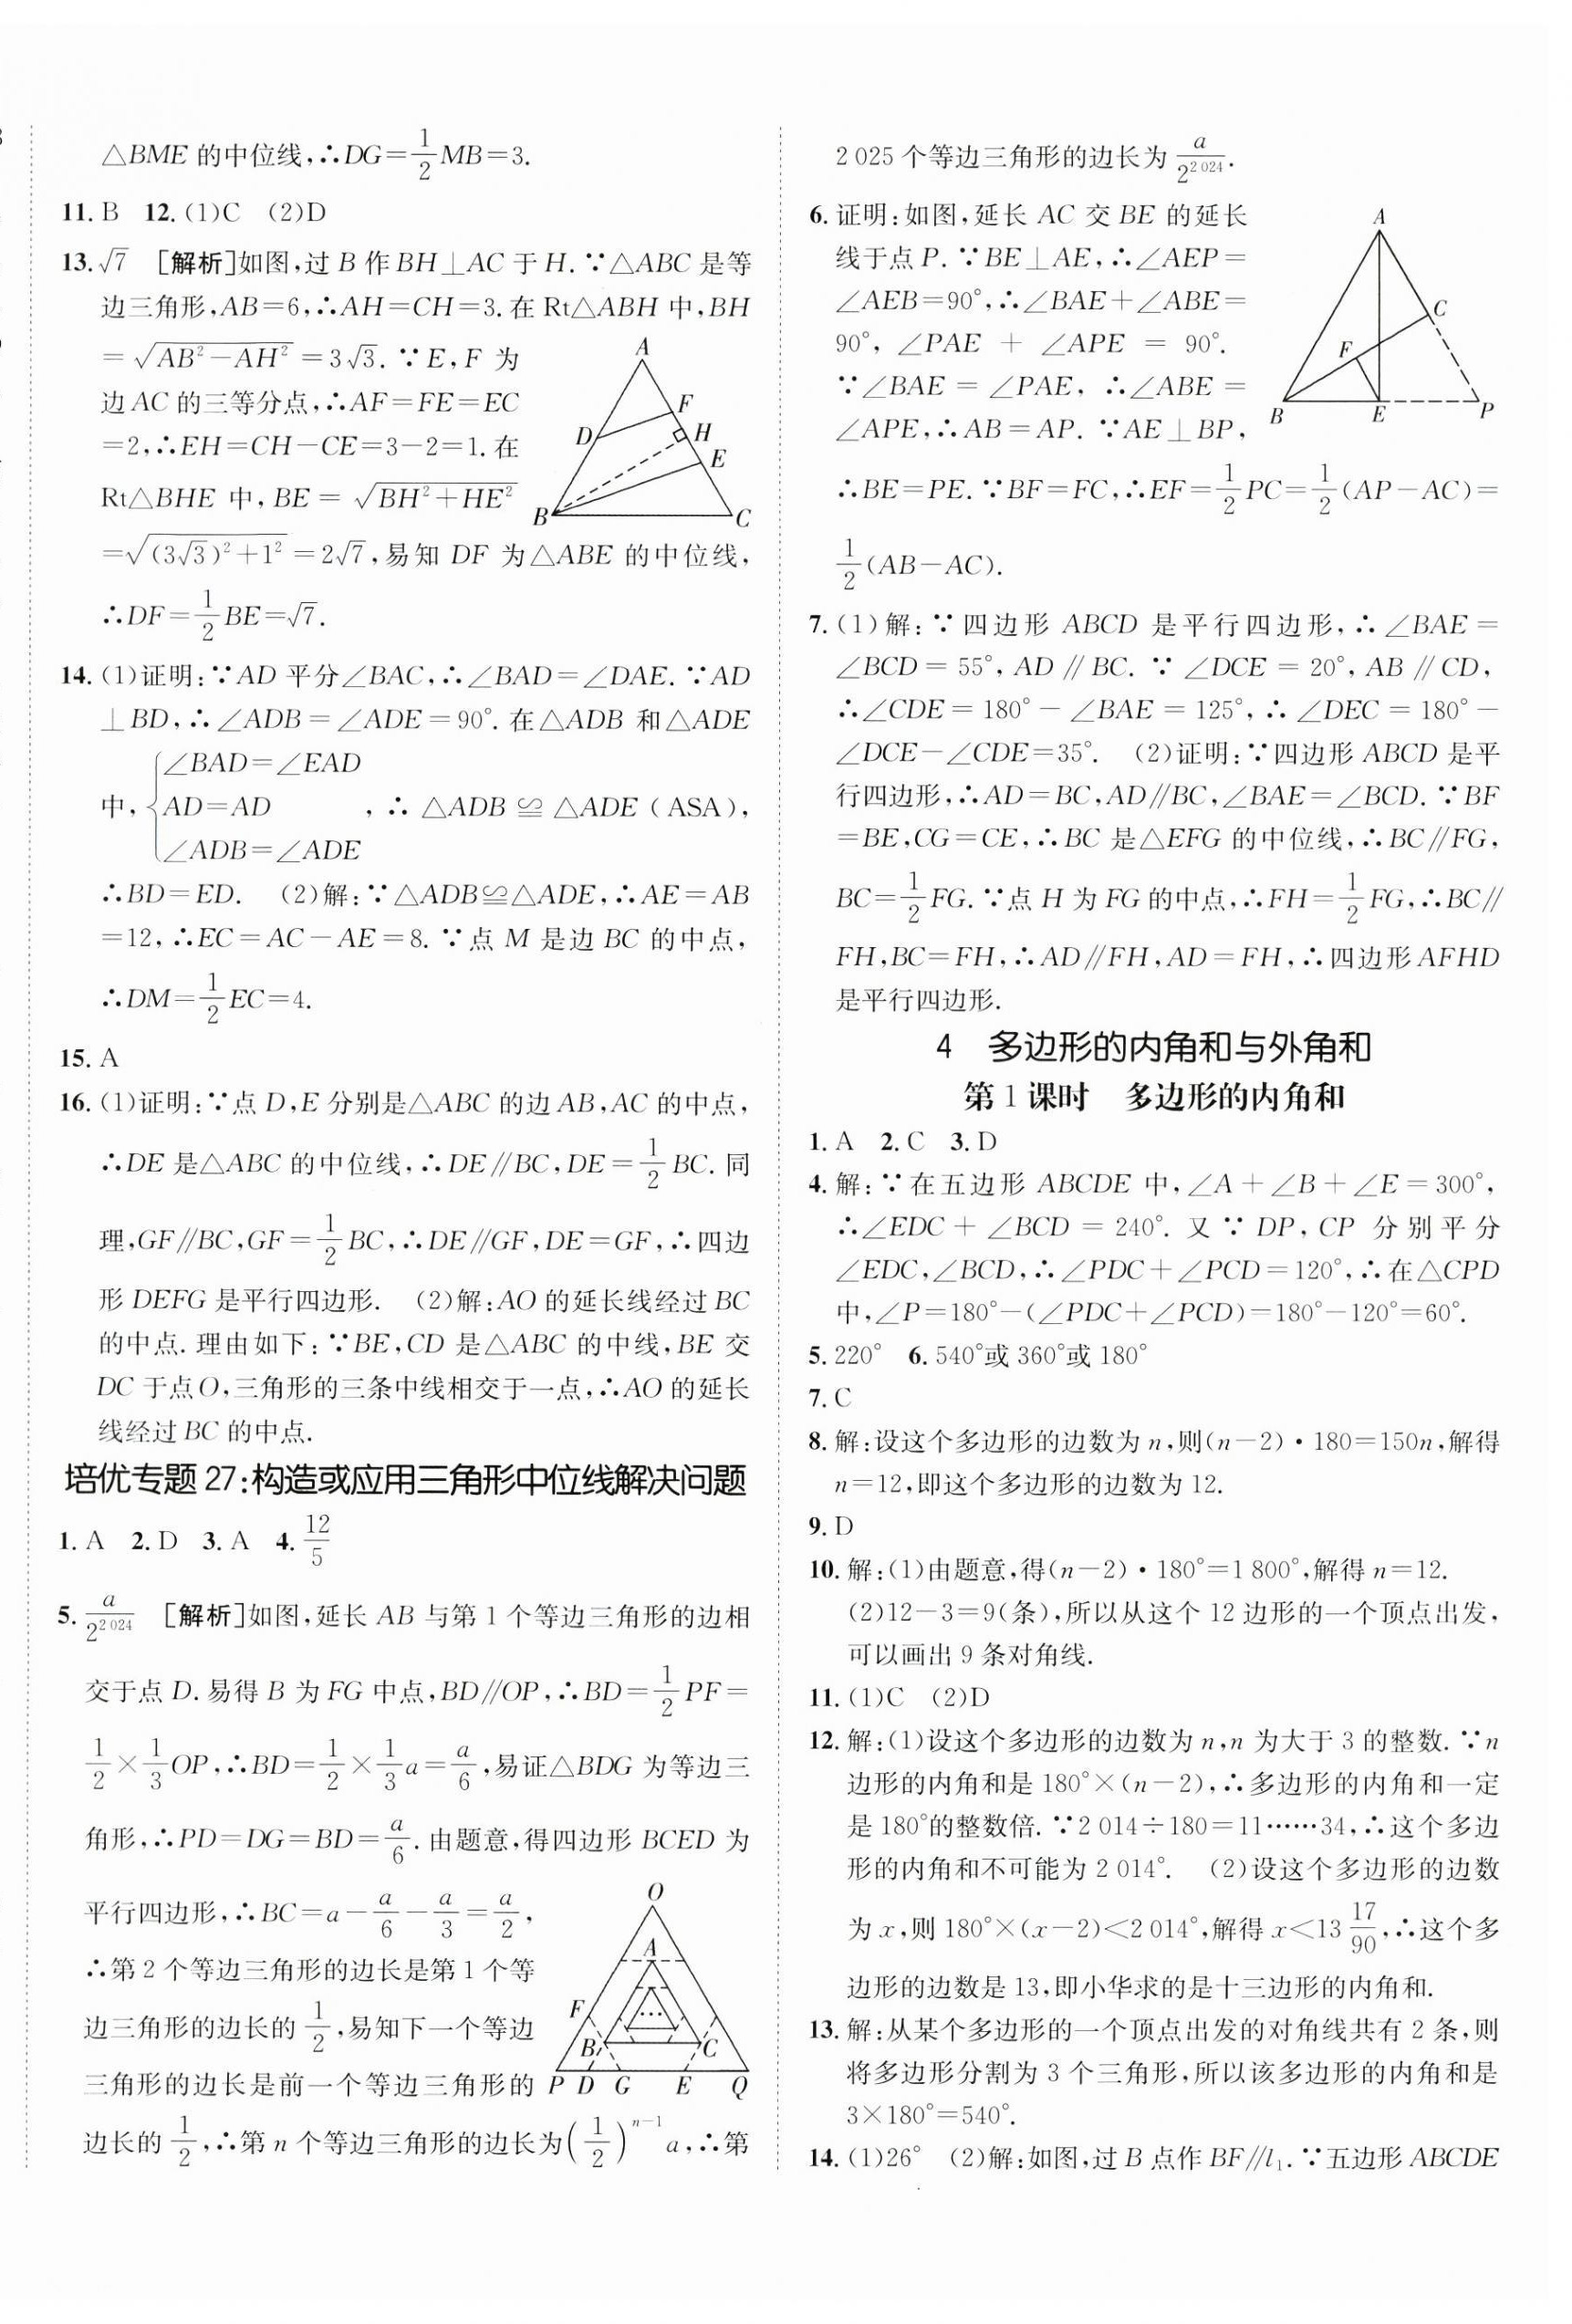 △BME 的中位线,∴DG=1/2MB=3.
11. B 12. (1)C (2)D
13. √7 [解析]如图,过 B 作 BH⊥AC 于 H. ∵△ABC 是等
边三角形,AB=6,∴AH=CH=3. 在 Rt△ABH 中,BH
=√(AB²-AH²)=3√3. ∵E,F 为
边 AC 的三等分点,∴AF=FE=EC
=2,∴EH=CH-CE=3-2=1. 在
Rt△BHE 中,BE=√(BH²+HE²)
=√((3√3)²+1²)=2√7,易知 DF 为△ABE 的中位线,
∴DF=1/2BE=√7.
A
F
D
H
E
B
C
14. (1)证明:∵AD 平分∠BAC,∴∠BAD=∠DAE. ∵AD
⊥BD,∴∠ADB=∠ADE=90°. 在△ADB 和△ADE
∠BAD=∠EAD
中,{AD=AD ,∴△ADB≌△ADE(ASA),
∠ADB=∠ADE
∴BD=ED. (2)解:∵△ADB≌△ADE,∴AE=AB
=12,∴EC=AC-AE=8. ∵点 M 是边 BC 的中点,
∴DM=1/2EC=4.
15. A
16. (1)证明:∵点 D,E 分别是△ABC 的边 AB,AC 的中点,
∴DE 是△ABC 的中位线,∴DE∥BC,DE=1/2BC. 同
理,GF∥BC,GF=1/2BC,∴DE∥GF,DE=GF,∴四边
形 DEFG 是平行四边形. (2)解:AO 的延长线经过 BC
的中点. 理由如下:∵BE,CD 是△ABC 的中线,BE 交
DC 于点 O,三角形的三条中线相交于一点,∴AO 的延长
线经过 BC 的中点.
培优专题 27:构造或应用三角形中位线解决问题
1. A 2. D 3. A 4. 12/5
5. a/2^2 024 [解析]如图,延长 AB 与第 1 个等边三角形的边相
交于点 D. 易得 B 为 FG 中点,BD∥OP,∴BD=1/2PF=
1/2×1/3OP,∴BD=1/2×1/3a=a/6,易证△BDG 为等边三
角形,∴PD=DG=BD=a/6. 由题意,得四边形 BCED 为
平行四边形,∴BC=a-a/6-a/3=a/2,
∴第 2 个等边三角形的边长是第 1 个等
边三角形的边长的1/2,易知下一个等边
三角形的边长是前一个等边三角形的
边长的1/2,∴第 n 个等边三角形的边长为(1/2)^(n-1)a,∴第
O
A
F
…
B
C
P D G E Q
2 025 个等边三角形的边长为a/2^2 024.
6. 证明:如图,延长 AC 交 BE 的延长
线于点 P. ∵BE⊥AE,∴∠AEP=
∠AEB=90°,∴∠BAE+∠ABE=
90°,∠PAE+∠APE=90°.
∵∠BAE=∠PAE,∴∠ABE=
∠APE,∴AB=AP. ∵AE⊥BP,
∴BE=PE. ∵BF=FC,∴EF=1/2PC=1/2(AP-AC)=
1/2(AB-AC).
A
C
F
B
E
P
7. (1)解:∵四边形 ABCD 是平行四边形,∴∠BAE=
∠BCD=55°,AD∥BC. ∵∠DCE=20°,AB∥CD,
∴∠CDE=180°-∠BAE=125°,∴∠DEC=180°-
∠DCE-∠CDE=35°. (2)证明:∵四边形 ABCD 是平
行四边形,∴AD=BC,AD∥BC,∠BAE=∠BCD. ∵BF
=BE,CG=CE,∴BC 是△EFG 的中位线,∴BC∥FG,
BC=1/2FG. ∵点 H 为 FG 的中点,∴FH=1/2FG,∴BC∥
FH,BC=FH,∴AD∥FH,AD=FH,∴四边形 AFHD
是平行四边形.
4 多边形的内角和与外角和
第 1 课时 多边形的内角和
1. A 2. C 3. D
4. 解:∵在五边形 ABCDE 中,∠A+∠B+∠E=300°,
∴∠EDC+∠BCD=240°. 又∵DP,CP 分别平分
∠EDC,∠BCD,∴∠PDC+∠PCD=120°,∴在△CPD
中,∠P=180°-(∠PDC+∠PCD)=180°-120°=60°.
5. 220° 6. 540°或 360°或 180°
7. C
8. 解:设这个多边形的边数为 n,则(n-2)·180=150n,解得
n=12,即这个多边形的边数为 12.
9. D
10. 解:(1)由题意,得(n-2)·180°=1 800°,解得 n=12.
(2)12-3=9(条),所以从这个 12 边形的一个顶点出发,
可以画出 9 条对角线.
11. (1)C (2)D
12. 解:(1)设这个多边形的边数为 n,n 为大于 3 的整数. ∵n
边形的内角和是 180°×(n-2),∴多边形的内角和一定
是 180°的整数倍. ∵2 014÷180=11……34,∴这个多边
形的内角和不可能为 2 014°. (2)设这个多边形的边数
为 x,则 180°×(x-2)<2 014°,解得 x<13 17/90,∴这个多
边形的边数是 13,即小华求的是十三边形的内角和.
13. 解:从某个多边形的一个顶点出发的对角线共有 2 条,则
将多边形分割为 3 个三角形,所以该多边形的内角和是
3×180°=540°.
14. (1)26° (2)解:如图,过 B 点作 BF∥l₁. ∵五边形 ABCDE